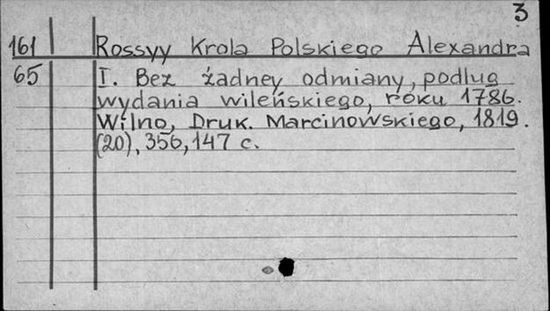 3
161 Rossyy Krola Polskiego Alexandra
65 I. Bez żadney odmiany, podlug
wydania wileńskiego, roku 1786.
Wilno, Druk. Marcinowskiego, 1819.
(20), 356, 147 c.